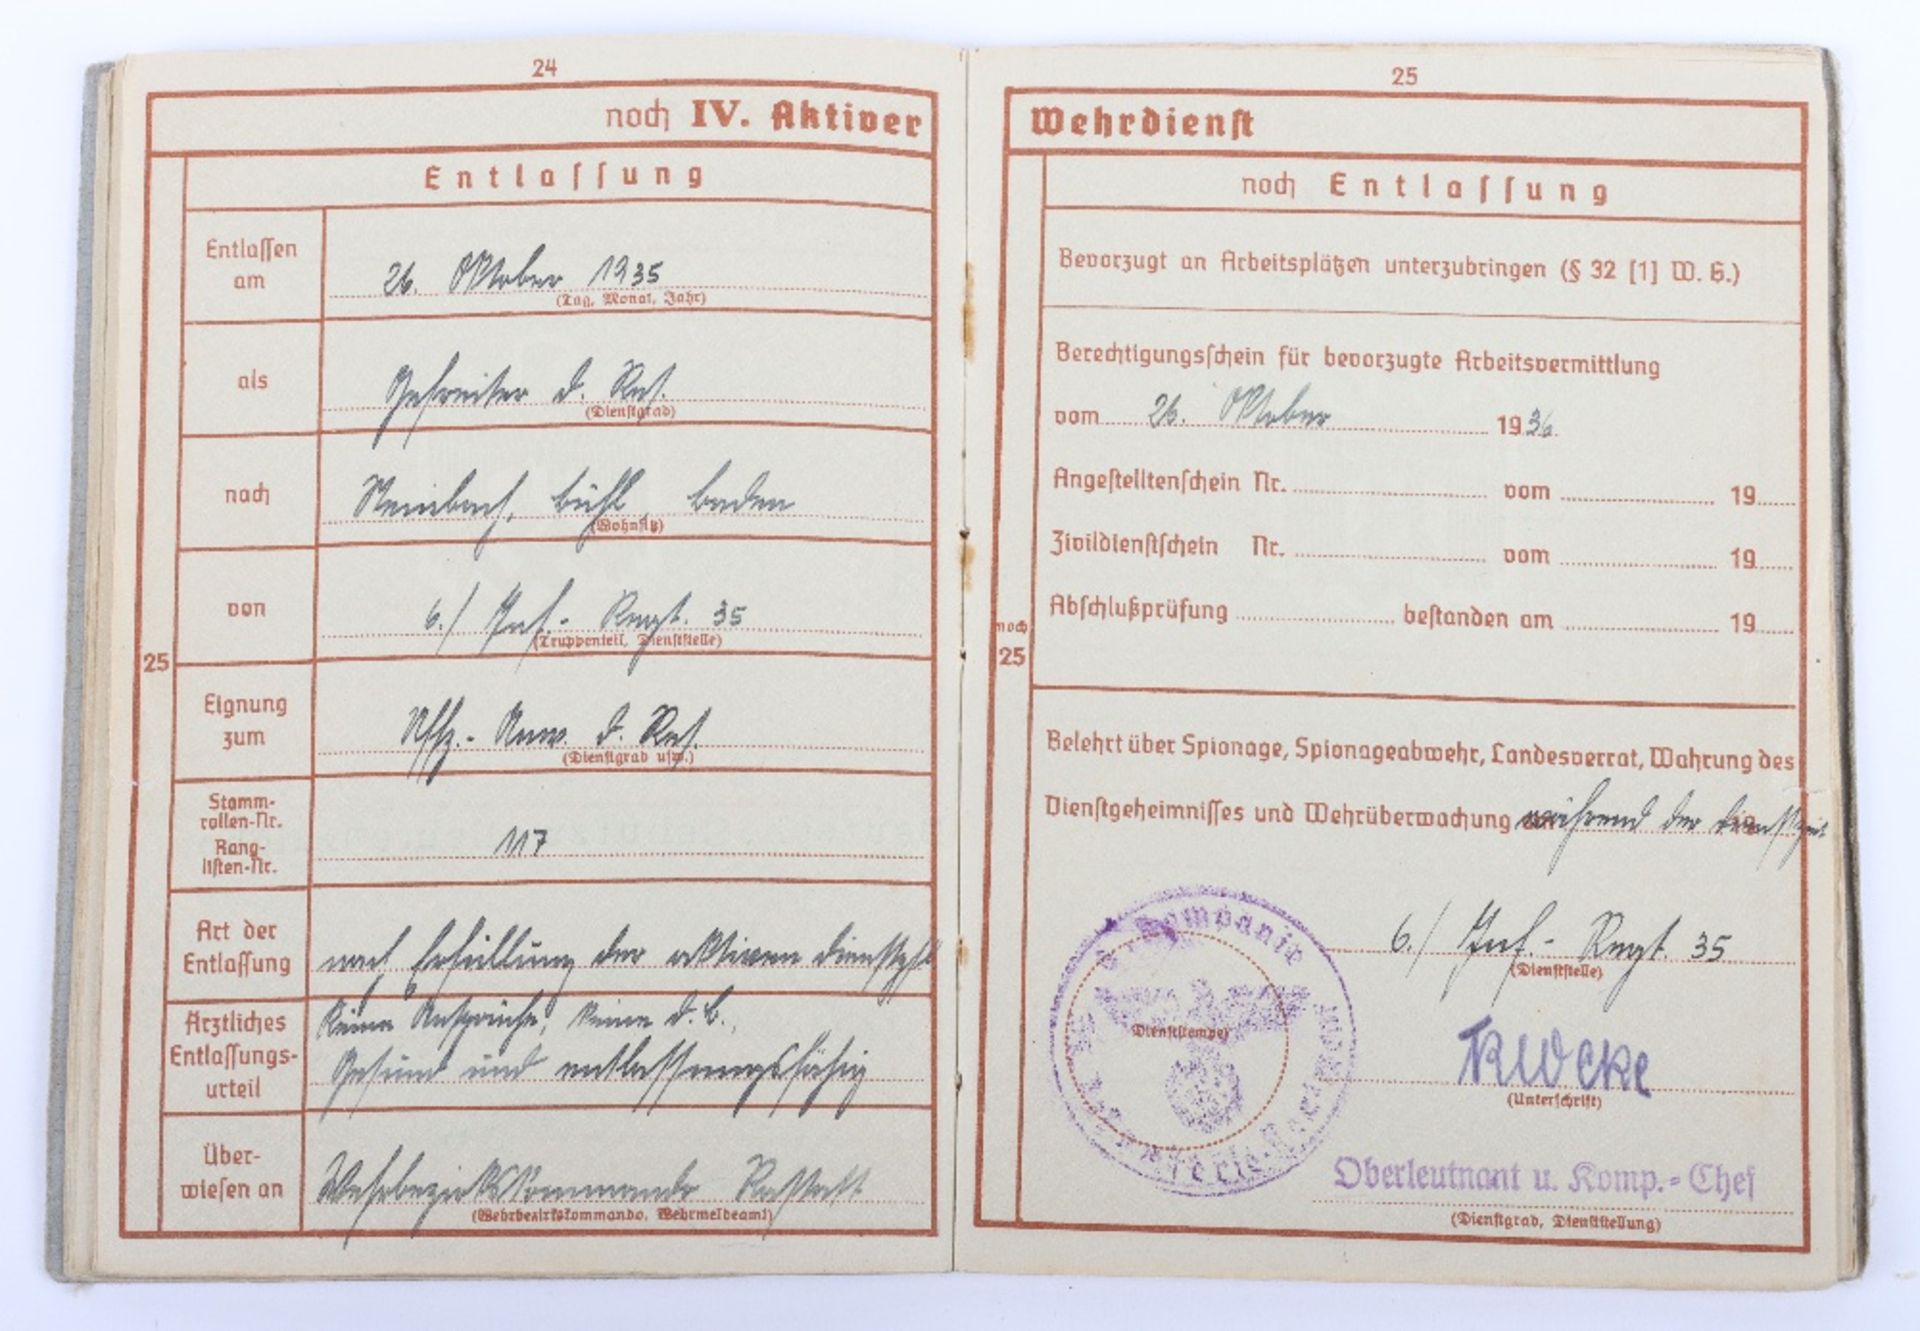 24
noch IV. Aktiver
Entlassung
Entlassen am
26. Oktober 1935
(Tag, Monat, Jahr)
als
Gefreiter d. Res.
(Dienstgrad)
nach
Steinbach, Bühl, Baden
(Wohnsitz)
von
6./ Inf.- Regt. 35
(Truppenteil, Dienststelle)
25
Eignung zum
Uffz.- Anw. d. Res.
(Dienstgrad usw.)
Stamm-
rollen-Nr.
Rang-
listen-Nr.
117
Art der
Entlassung
nach Erfüllung der aktiven Dienstpfl
Ärztliches
Entlassungs-
urteil
Keine Ansprüche, keine d. B.,
Gesund und entlassungsfähig
Über-
wiesen an
Wehrbezirkskommando Rastatt
(Wehrbezirkskommando, Wehrmeldeamt)
25
Wehrdienst
noch Entlassung
Bevorzugt an Arbeitsplätzen unterzubringen (§ 32 [1] W. G.)
Berechtigungsschein für bevorzugte Arbeitsvermittlung
vom 26. Oktober 1936
Angestelltenschein Nr. vom 19
Zivildienstschein Nr. vom 19
Abschlußprüfung bestanden am 19
noch
25
Belehrt über Spionage, Spionageabwehr, Landesverrat, Wahrung des
Dienstgeheimnisses und Wehrüberwachung während der Dienstzeit
Kompanie
Infanterie-Regiment
(Dienststempel)
6./ Inf.- Regt. 35
(Dienststelle)
(Unterschrift)
Oberleutnant u. Komp.- Chef
(Dienstgrad, Dienststellung)